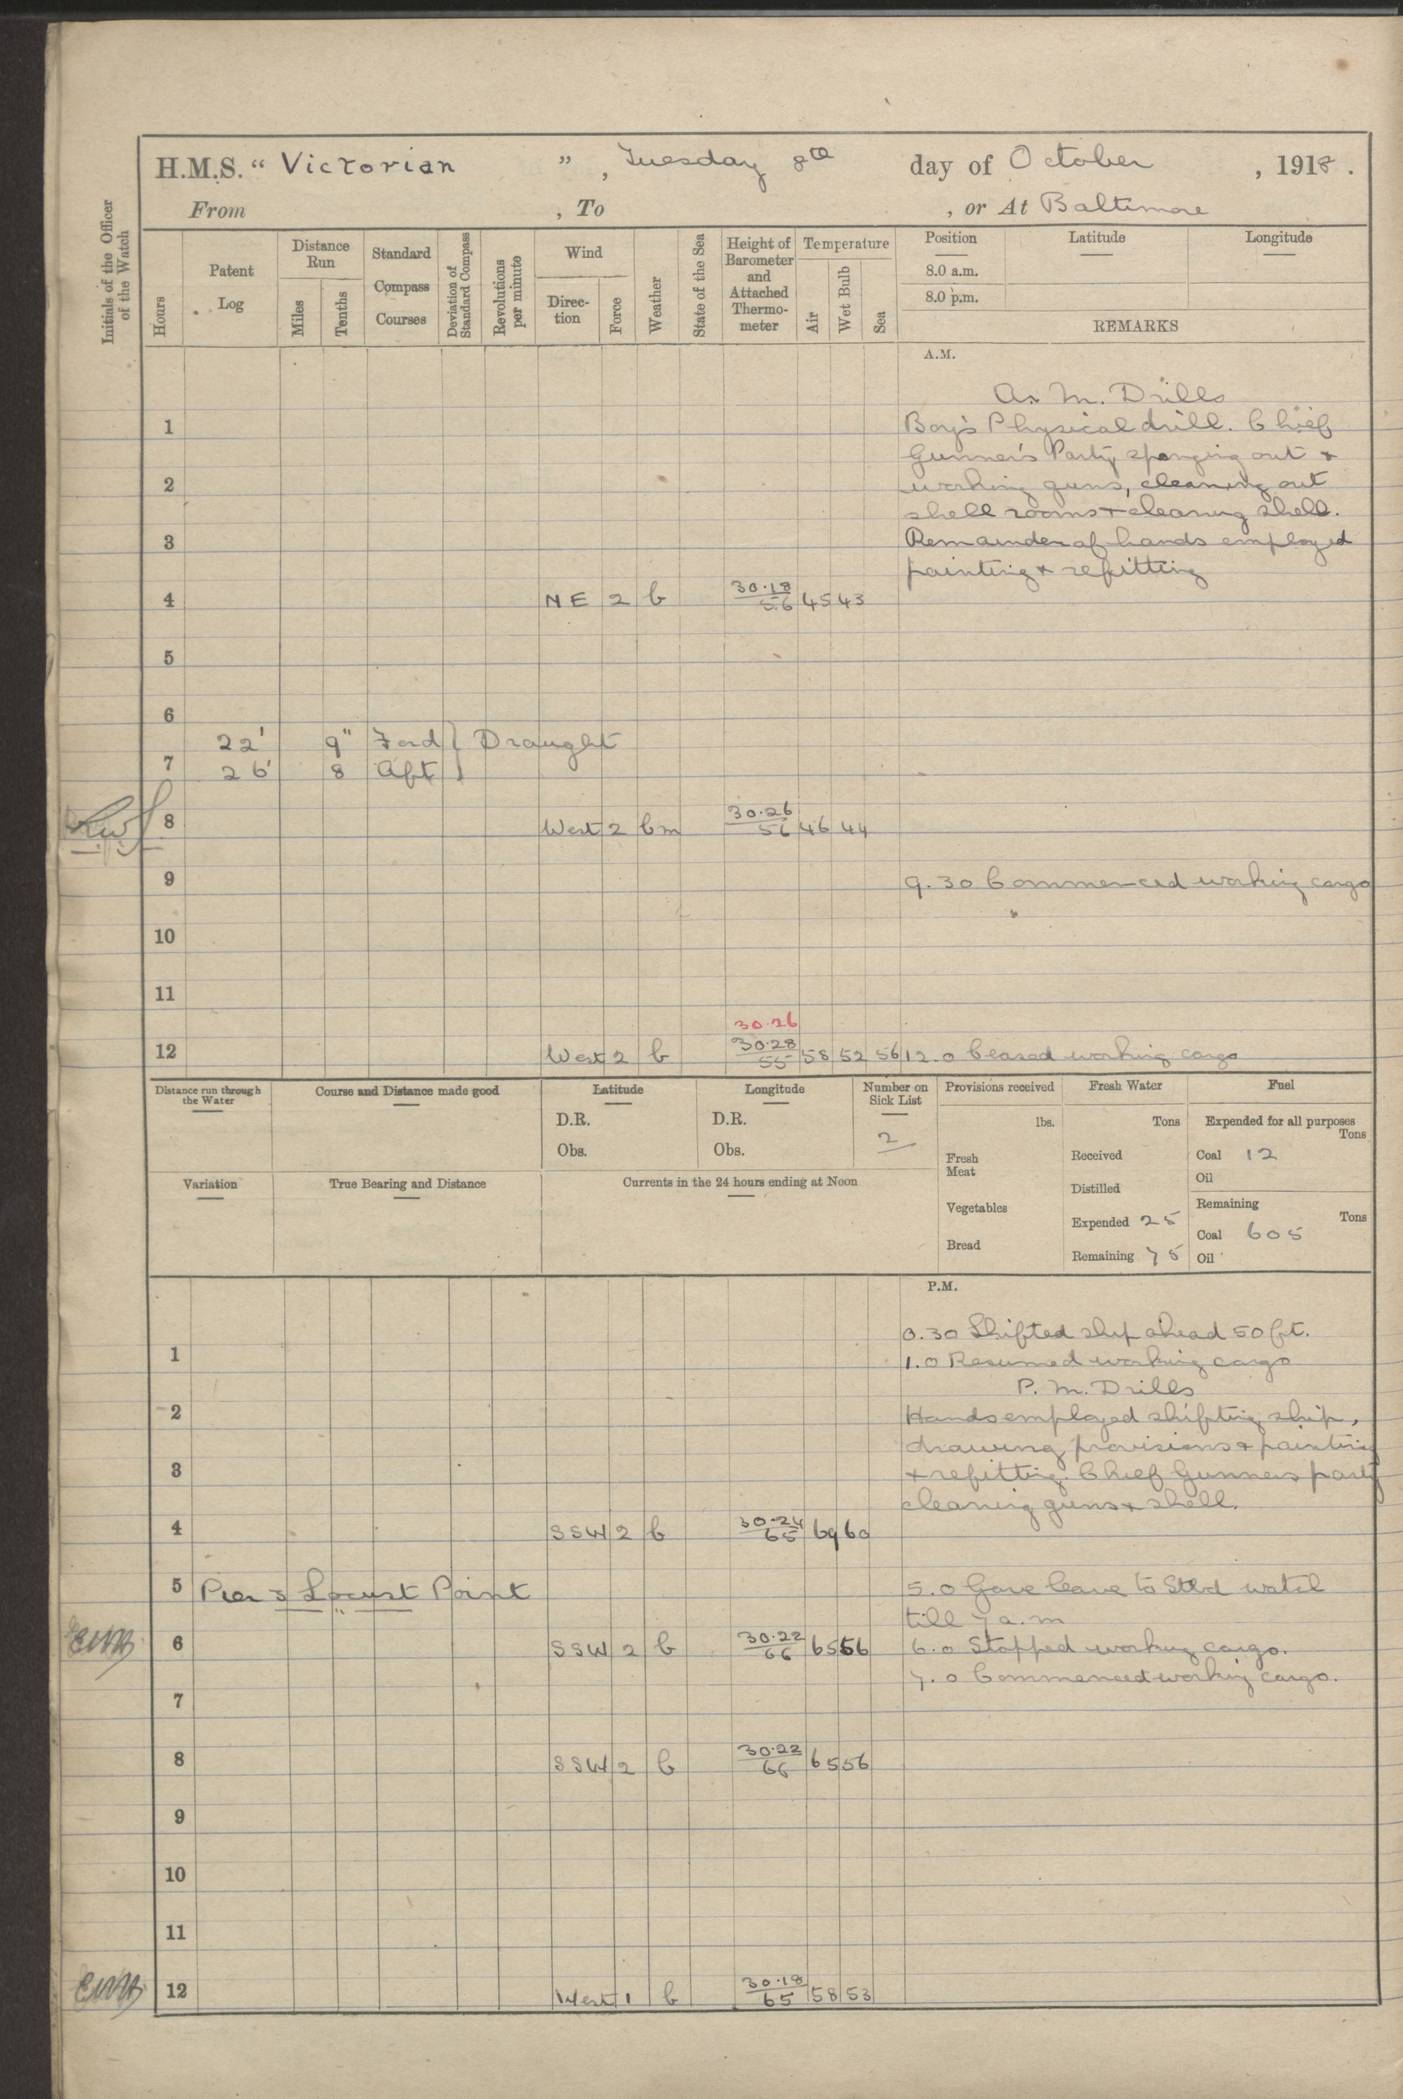 H.M.S. "Victorian", Tuesday 8th day of October, 1918.
From , To , or At Baltimore
Initials of the Officer of the Watch
Hours
Patent Log
Distance Run
Miles
Tenths
Standard Compass Courses
Deviation of Standard Compass
Revolutions per minute
Wind
Direc-tion
Force
Weather
State of the Sea
Height of Barometer and Attached Thermo-meter
Temperature
Air
Wet Bulb
Sea
Position Latitude Longitude
8.0 a.m.
8.0 p.m.
REMARKS
A.M.
A. M. Drills
1 Boy's Physical drill. Chief
Gunner's Party sponging out &
2 working guns, cleaning out
shell rooms & cleaning shell.
3 Remainder of hands employed
painting & refitting
4 NE 2 b 30.18 56 45 43
5
6
22' 9" Ford } Draught
7 26' 8 Aft }
8 West 2 bm 30.26 56 46 44
9 9.30 Commenced working cargo
10
11
30.26
12 West 2 b 30.28 55 58 52 56 12.0 Ceased working cargo
Distance run through the Water
Course and Distance made good
Latitude
D.R.
Obs.
Longitude
D.R.
Obs.
Number on Sick List
2
Provisions received
lbs.
Fresh Meat
Vegetables
Bread
Fresh Water
Tons
Received
Distilled
Expended 25
Remaining 75
Fuel
Expended for all purposes
Tons
Coal 12
Oil
Remaining
Tons
Coal 605
Oil
Variation
True Bearing and Distance
Currents in the 24 hours ending at Noon
P.M.
0.30 Shifted ship ahead 50 ft.
1 1.0 Resumed working cargo
P. M. Drills
2 Hands employed shifting ship,
drawing provisions & painting
3 & refitting. Chief Gunners party
cleaning guns & shell.
4 SSW 2 b 30.24 65 69 60
5 Pier 3 Locust Point 5.0 Gave leave to Stbd watch
till 7 a.m
6 SSW 2 b 30.22 66 65 56 6.0 Stopped working cargo.
7.0 Commenced working cargo.
7
8 SSW 2 b 30.22 66 65 56
9
10
11
12 West 1 b 30.18 65 58 53